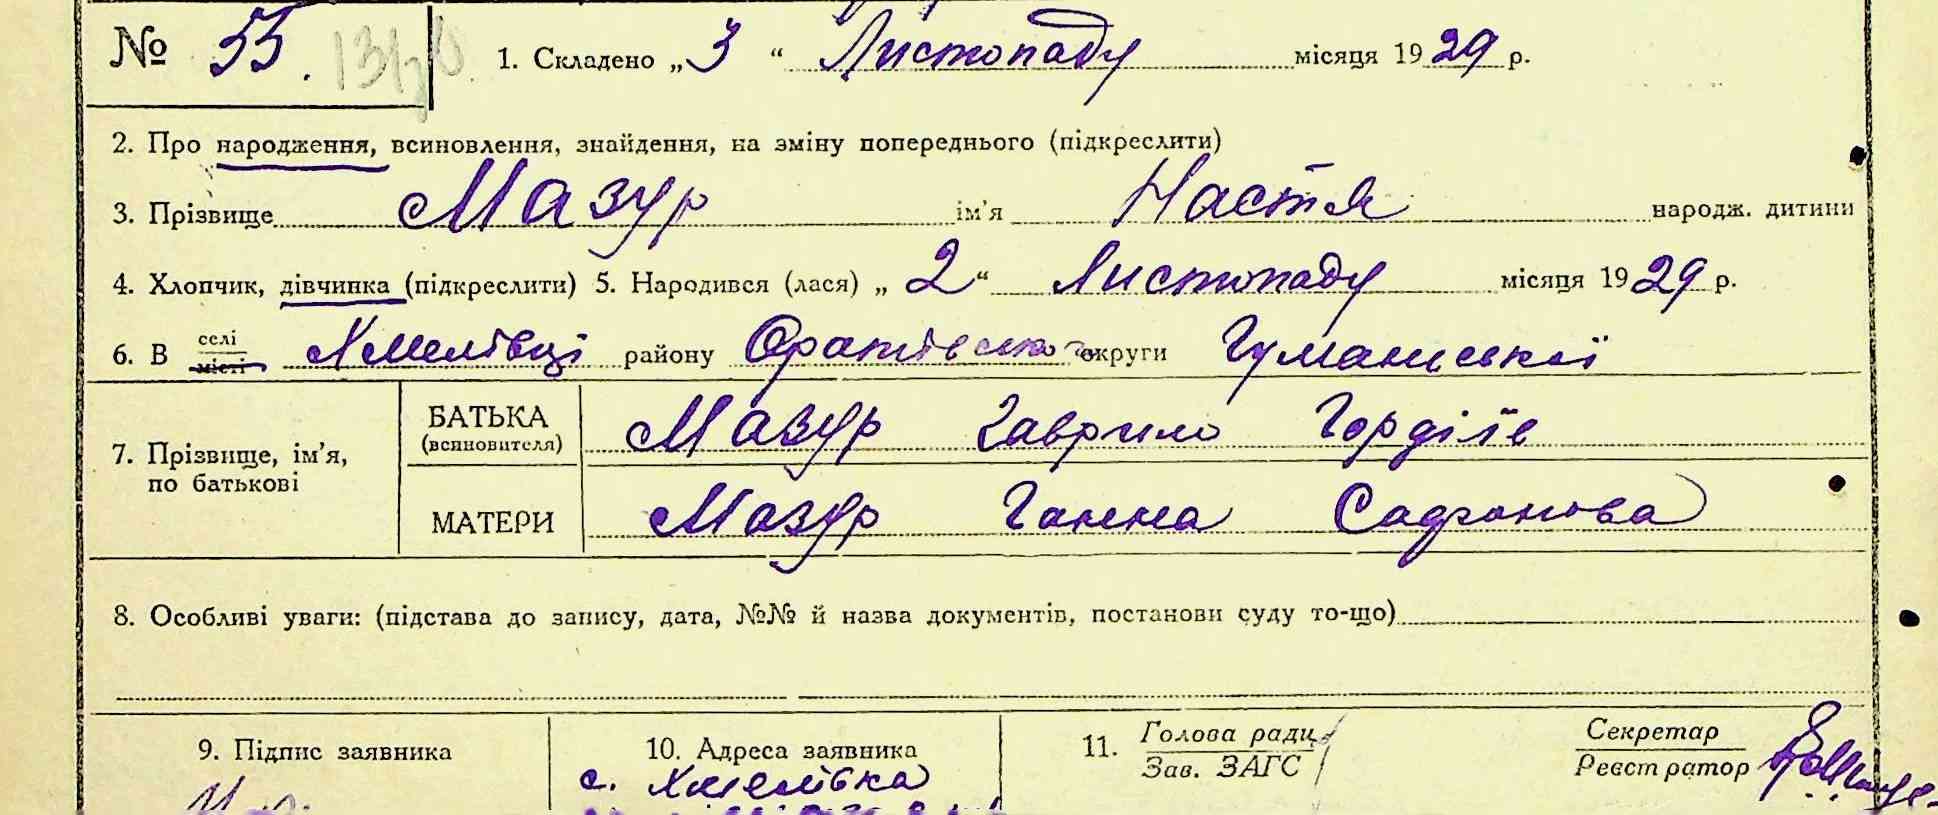 № 55.
1. Складено „3“ Листопаду місяця 1929 р.
2. Про народження, всиновлення, знайдення, на зміну попереднього (підкреслити)
3. Прізвище Мазур ім’я Настя народж. дитини
4. Хлопчик, дівчинка (підкреслити) 5. Народився (лася) „2“ Листопаду місяця 1929 р.
6. В селі місті Хмелівці району Оратівського округи Гуманської
7. Прізвище, ім’я, по батькові
БАТЬКА (всиновителя) Мазур Гаврило Гордіїв
МАТЕРИ Мазур Ганна Сафронова
8. Особливі уваги: (підстава до запису, дата, №№ й назва документів, постанови суду то-що)
9. Підпис заявника
10. Адреса заявника
с. Хмелівка
11. Голова ради
Зав. ЗАГС
Секретар
Реєстратор